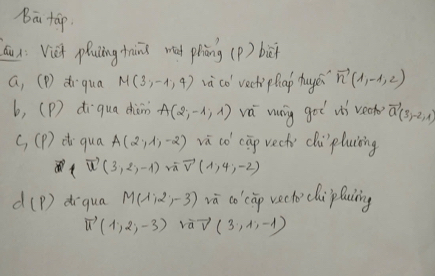 Bài tập.
Câu 1: Viết phương trình mặt phẳng (P) biết
a, (P) đi qua M(3,-1,4) và có vectơ pháp tuyến n→(1,-1,2)
b, (P) đi qua điểm A(2,-1,1) và vuông góc với vectơ a→(3,-2,1)
c, (P) đi qua A(2,1,-2) và có cặp vectơ chỉ phương
u→(3,2,-1) và v→(1,4,-2)
d (P) đi qua M(1,2,-3) và có cặp vectơ chỉ phương
u→(1,2,-3) và v→(3,1,-1)